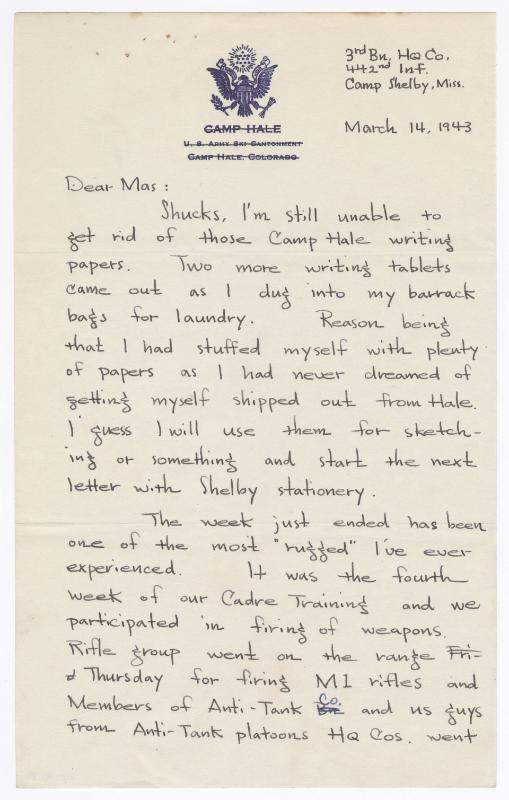 3rd Bn, Hq Co.
442nd Inf.
Camp Shelby, Miss.
CAMP HALE
U. S. ARMY SKI CANTONMENT
CAMP HALE, COLORADO
March 14, 1943
Dear Mas :
Shucks, I'm still unable to
get rid of those Camp Hale writing
papers. Two more writing tablets
came out as I dug into my barrack
bags for laundry. Reason being
that I had stuffed myself with plenty
of papers as I had never dreamed of
getting myself shipped out from Hale.
I guess I will use them for sketch-
ing or something and start the next
letter with Shelby stationery.
The week just ended has been
one of the most "rugged" I've ever
experienced. It was the fourth
week of our Cadre Training and we
participated in firing of weapons.
Rifle group went on the range Fri-
d Thursday for firing M1 rifles and
Members of Anti-Tank Co. and us guys
from Anti-Tank platoons Hq Cos. went